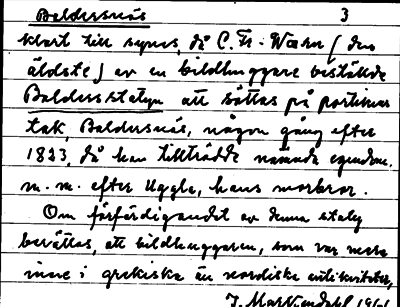 Baldersnäs 3
klart till synes, då C. Fr. Wærn (den
äldste) av en bildhuggare beställde
Baldersstatyn att sättas på portikens
tak, Baldersnäs, någon gång efter
1823, då han tillträdde nämnda egendom
m. m. efter Uggla, hans morbror.
Om förfärdigandet av denna staty
berättas, att bildhuggaren, som var mera
inne i grekiska än nordiska antikviteter,
J. Marklendahl